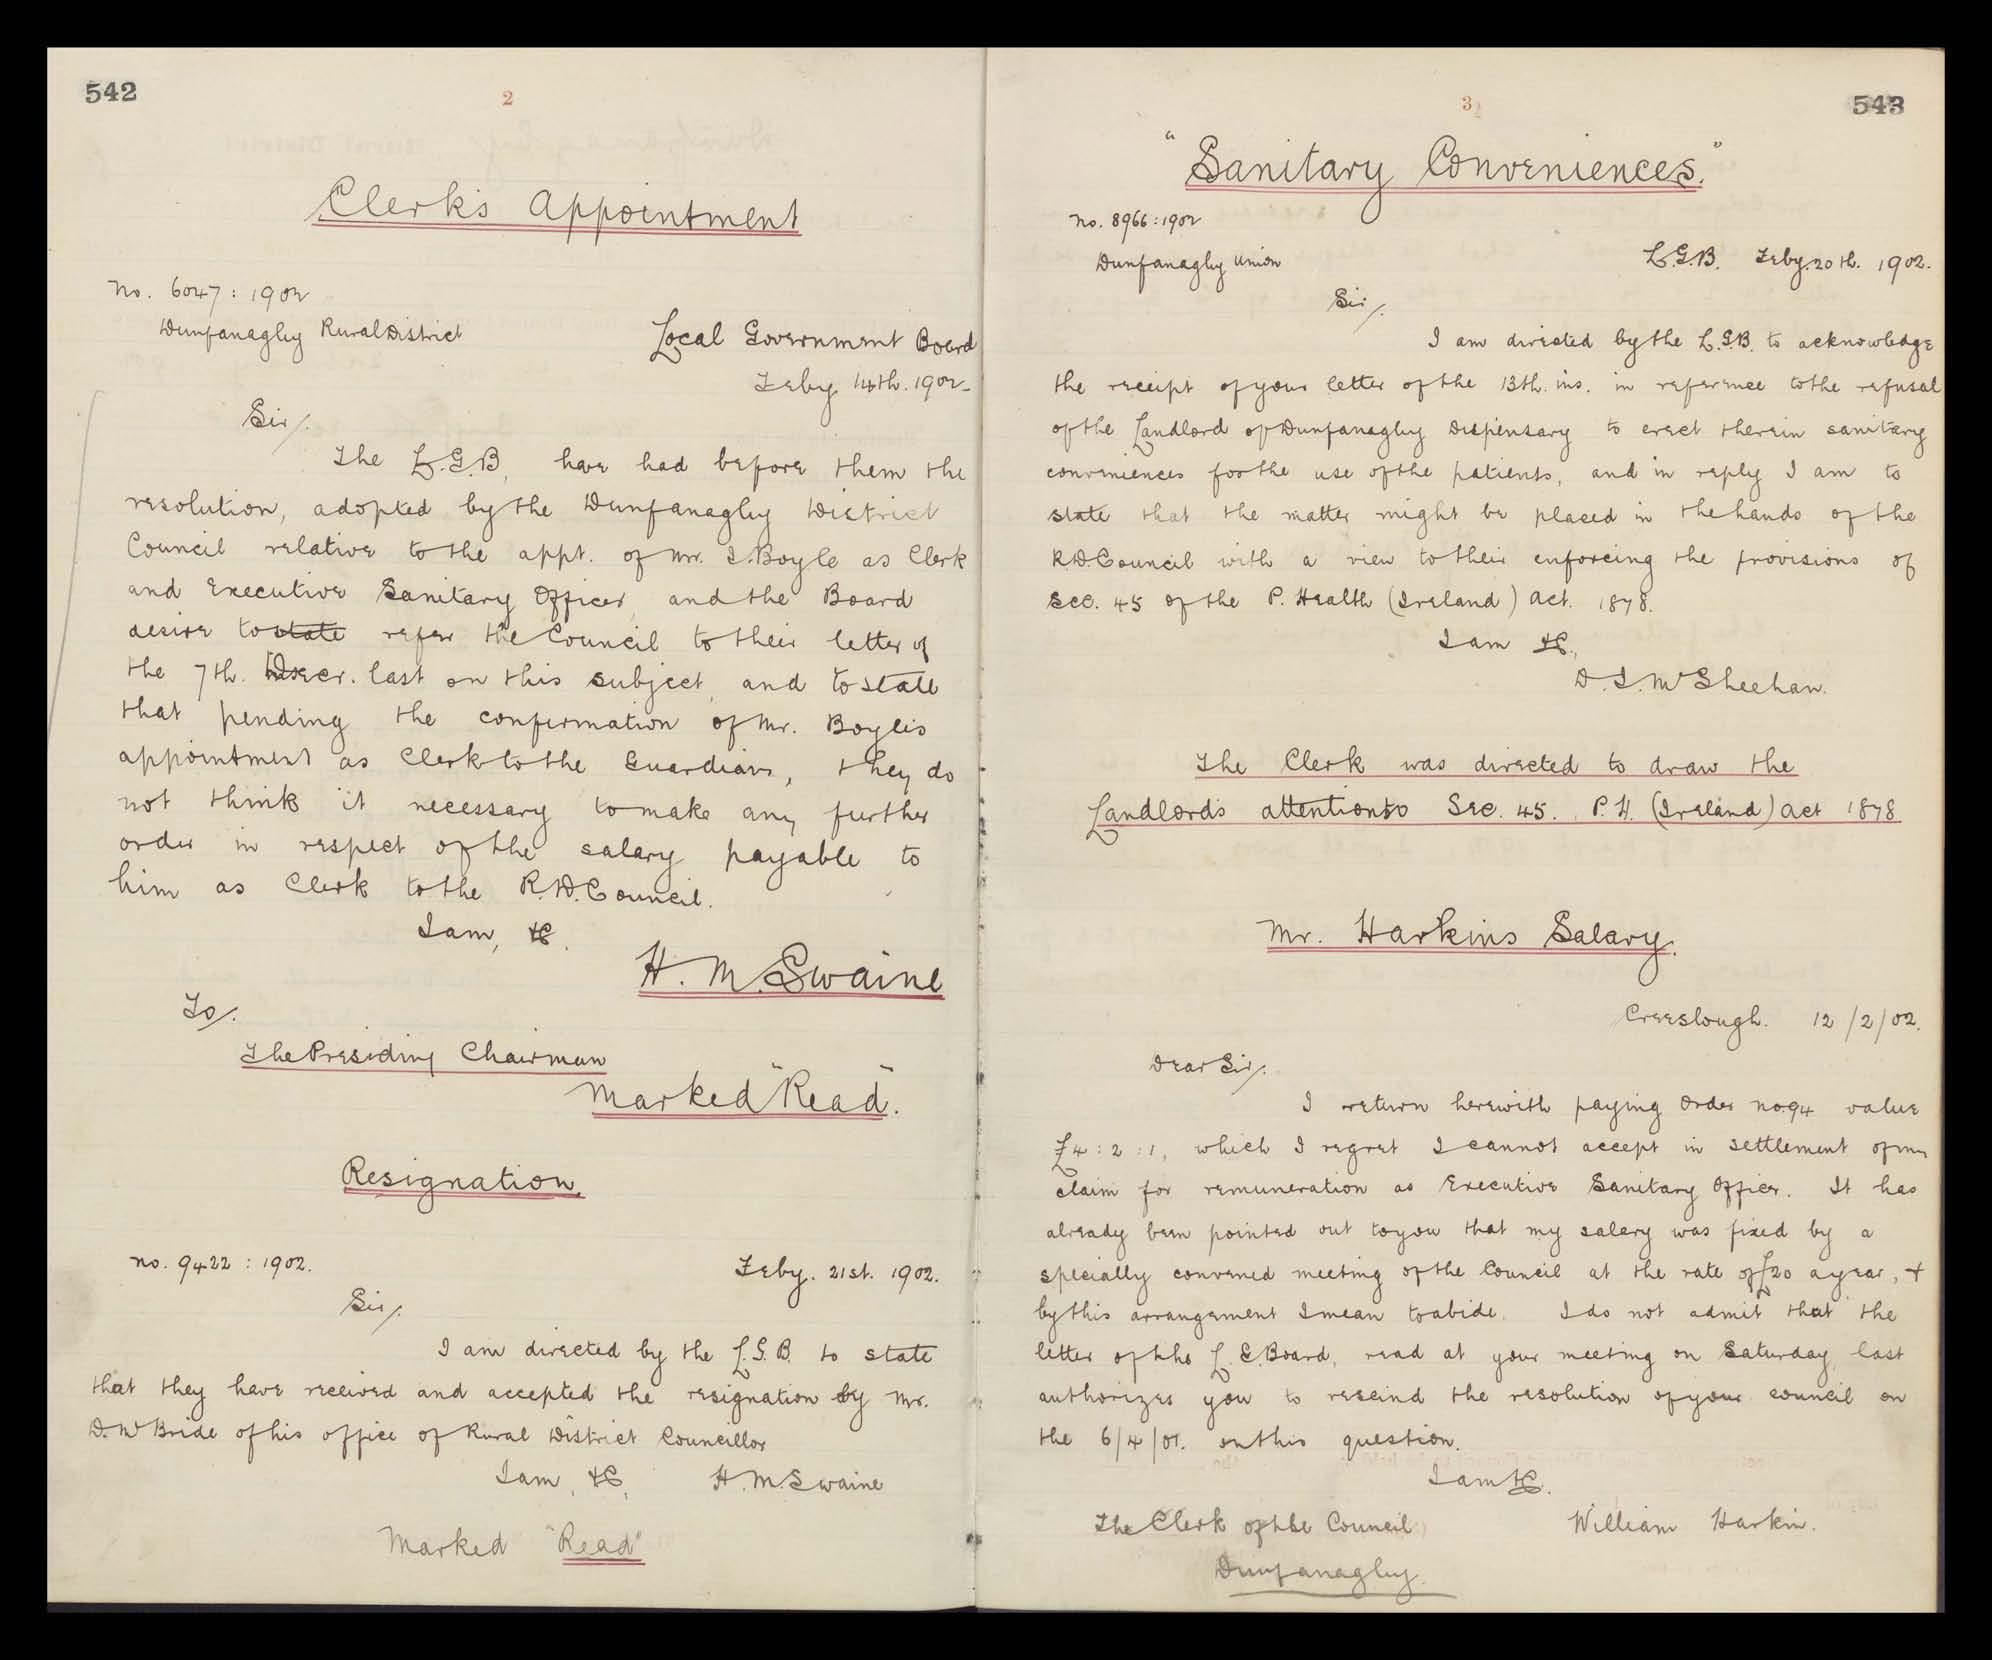 542
2
Clerk's Appointment
No. 6047 : 1902
Dunfanaghy Rural District
Local Government Board
Feby. 14th. 1902
Sir/.
The L.G.B, have had before them the
resolution, adopted by the Dunfanaghy District
Council relative to the appt. of Mr. J. Boyle as Clerk
and Executive Sanitary Officer, and the Board
desire to state refer the Council to their letter of
the 7th. Decr. last on this subject, and to state
that pending the confirmation of Mr. Boyle's
appointment as Clerk to the Guardians, they do
not think it necessary to make any further
order in respect of the salary payable to
him as Clerk to the R.D. Council.
I am, &c.
H. M. Swaine
To/.
The Presiding Chairman
Marked "Read".
Resignation.
No. 9422 : 1902.
Feby. 21st. 1902.
Sir/.
I am directed by the L.G.B. to state
that they have received and accepted the resignation by Mr.
D. McBride of his office of Rural District Councillor
I am, &c, H. M. Swaine
Marked "Read"
3
543
"Sanitary Conveniences."
No. 8966 : 1902
Dunfanaghy Union
L.G.B. Feby. 20th. 1902.
Sir/.
I am directed by the L.G.B. to acknowledge
the receipt of your letter of the 13th. ins. in reference to the refusal
of the Landlord of Dunfanaghy Dispensary to erect therein sanitary
conveniences for the use of the patients, and in reply I am to
state that the matter might be placed in the hands of the
R.D. Council with a view to their enforcing the provisions of
Sec. 45 of the P. Health (Ireland) Act. 1878.
I am &c,
D. J. McSheehan.
The Clerk was directed to draw the
Landlord's attention to Sec. 45. P. H. (Ireland) Act 1878
Mr. Harkins Salary.
Creeslough. 12/2/02.
Dear Sir/.
I return herewith paying order no. 94 value
£4 : 2 : 1, which I regret I cannot accept in settlement of my
claim for remuneration as Executive Sanitary Officer. It has
already been pointed out to you that my salary was fixed by a
specially convened meeting of the Council at the rate of £20 a year, +
by this arrangement I mean to abide. I do not admit that the
letter of the L.G. Board, read at your meeting on Saturday last
authorizes you to rescind the resolution of your council on
the 6/4/01. on this question.
I am &c.
The Clerk of the Council
William Harkin.
Dunfanaghy.